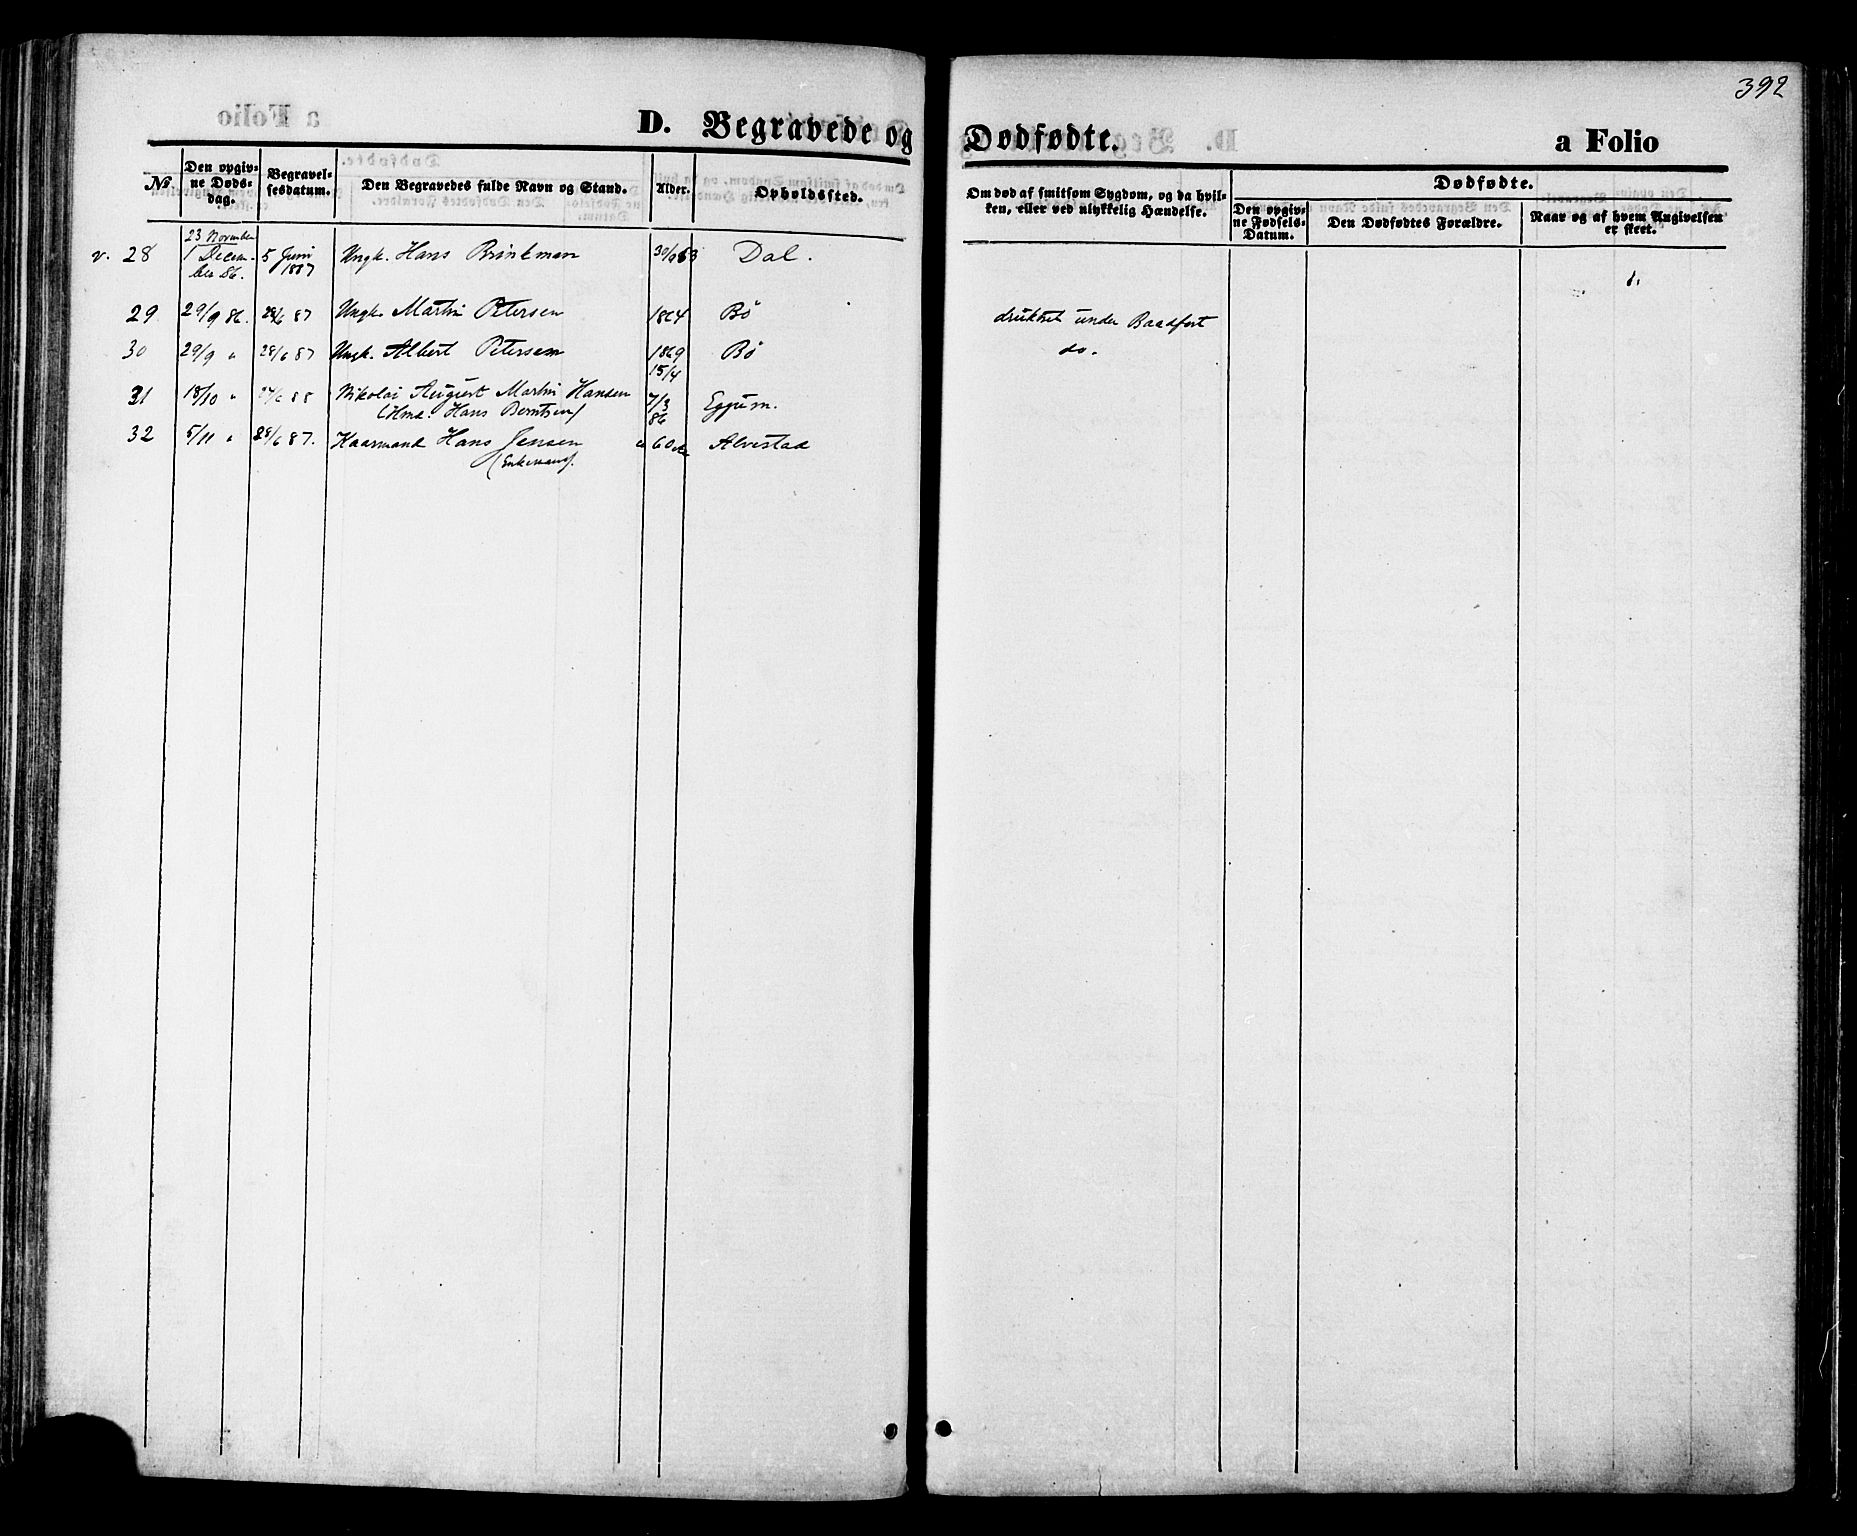 392
D. Begravede og Dødfødte. a Folio
№
Den opgiv-
ne Døds-
dag.
Begravel-
sesdatum.
Den Begravedes fulde Navn og Stand.
Alder.
Opholdssted.
Om død af smitsom Sygdom, og da hvil-
ken, eller ved ulykkelig Hændelse.
Dødfødte.
Den opgiv-
ne Fødsels-
Datum.
Den Dødfødtes Forældre.
Naar og af hvem Angivelsen
er skeet.
v. 28 23 November 5 Juni Ungk. Hans Brinkman 30/9 63 Dal.
1 Decem- 1887
ber 86.
29 29/9 86. 28/6 87 Ungk. Martin Petersen 1864 Bø druknet under Baadfart
30 29/9 " 28/6 87 Ungk. Albert Petersen 1869 Bø do.
15/4
31 18/10 " 88 Nikolai August Martin Hansen 7/3 Eggum.
Hans Berntsen) 86
32 5/11 " 28/6 87. Kaarmand Hans Jensen 60 Alvestad
(Enkemand).